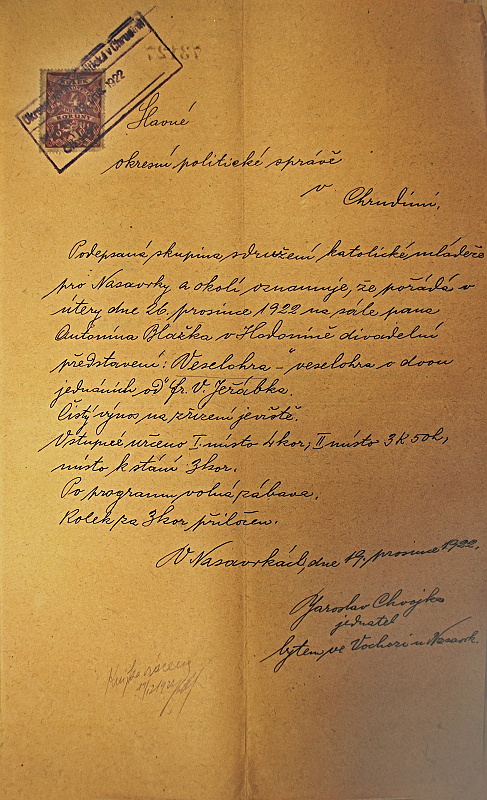 1922
Slavné
okresní politické správě
v
Chrudimi.
Podepsaná skupina sdružení katolické mládeže
pro Nasavrky a okolí oznamuje, že pořádá v
úterý dne 26. prosince 1922 na sále pana
Antonína Blažka v Hodoníně divadelní
představení: Veselohra - "veselohra o dvou
jednáních od" Fr. V. Jeřábka.
Čistý výnos na zřízení jeviště.
Vstupné určeno I. místo 4 kor, II místo 3 K 50 h,
místo k stání 3 kor.
Po programu volná zábava.
Kolek za 3 kor přiložen.
V Nasavrkách, dne 19. prosince 1922.
Jaroslav Chvojka
jednatel
bytem, ve Vochozi u Nasavrk.